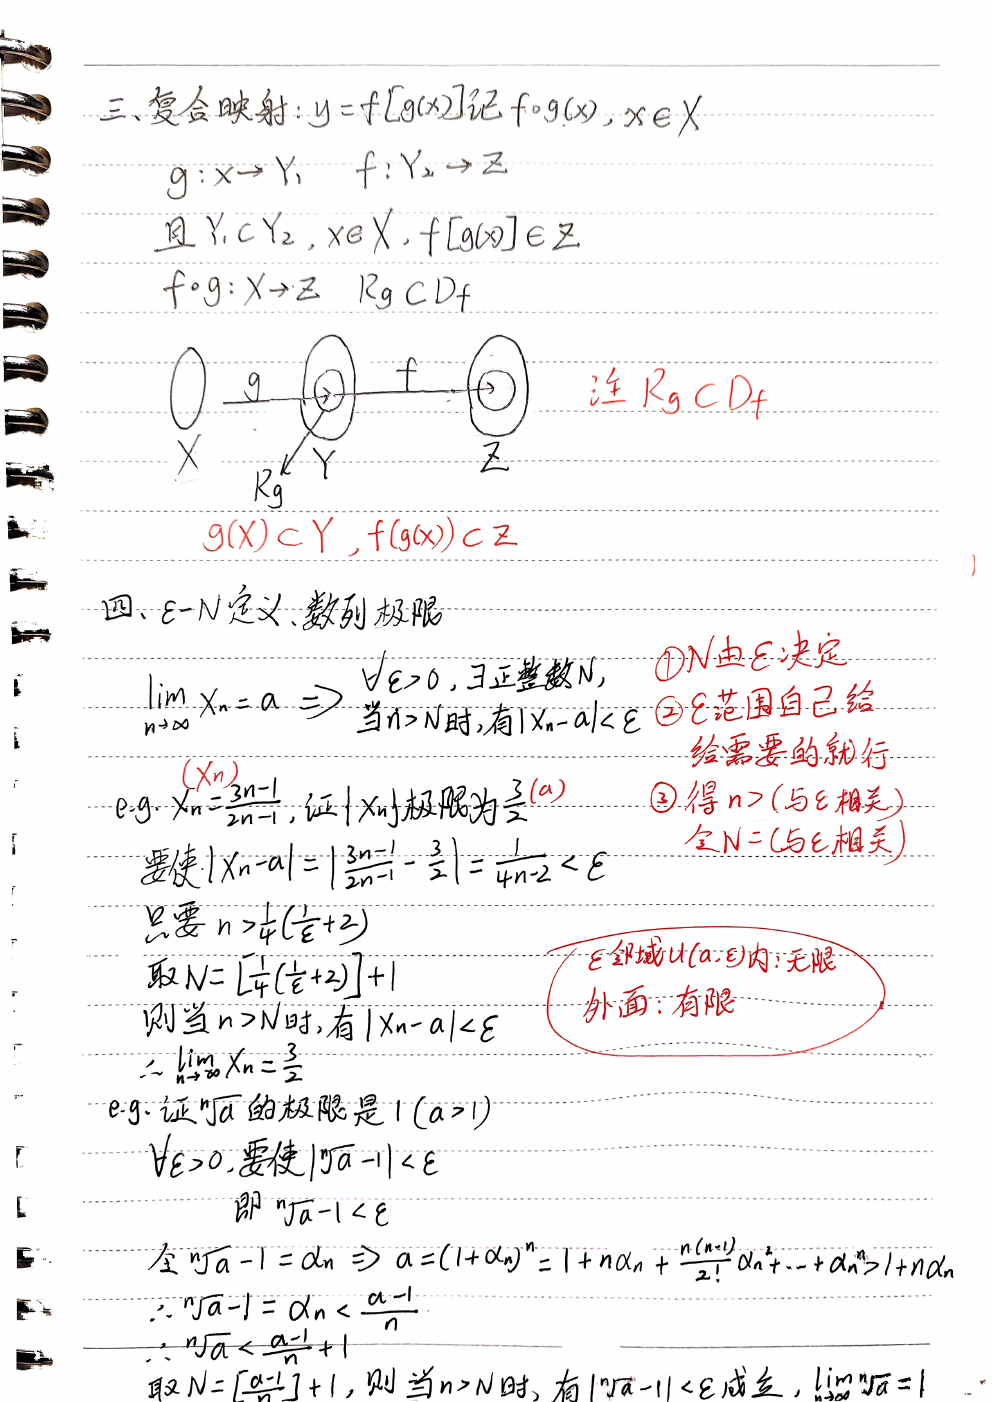 三、复合映射: y=f[g(x)]记 f∘g(x), x∈X
g: x→Y₁  f: Y₂→Z
且 Y₁⊂Y₂, x∈X, f[g(x)]∈Z
f∘g: X→Z  Rg⊂Df
g  f
注 Rg⊂Df
X  Rg  Y  Z
g(X)⊂Y, f(g(x))⊂Z
四、ε-N定义、数列极限
lim n→∞ Xn=a ⇒ ∀ε>0, ∃正整数N,
当n>N时,有|Xn-a|<ε
①N由ε决定
②ε范围自己给
给需要的就行
③得n>(与ε相关)
令N=(与ε相关)
(Xn)
e.g. Xn=(3n-1)/(2n-1), 证{Xn}极限为3/2 (a)
要使|Xn-a|=|(3n-1)/(2n-1) - 3/2|=1/(4n-2)<ε
只要 n>1/4(1/ε+2)
取N=[1/4(1/ε+2)]+1
则当n>N时,有|Xn-a|<ε
∴ lim n→∞ Xn=3/2
ε邻域U(a,ε)内:无限
外面:有限
e.g. 证ⁿ√a的极限是1(a>1)
∀ε>0,要使|ⁿ√a-1|<ε
即 ⁿ√a-1<ε
令ⁿ√a-1=αn ⇒ a=(1+αn)ⁿ=1+nαn+n(n-1)/2! αn²+…+αnⁿ>1+nαn
∴ ⁿ√a-1=αn<(a-1)/n
∴ ⁿ√a<(a-1)/n+1
取N=[(a-1)/n]+1, 则当n>N时,有|ⁿ√a-1|<ε成立, lim n→∞ ⁿ√a=1